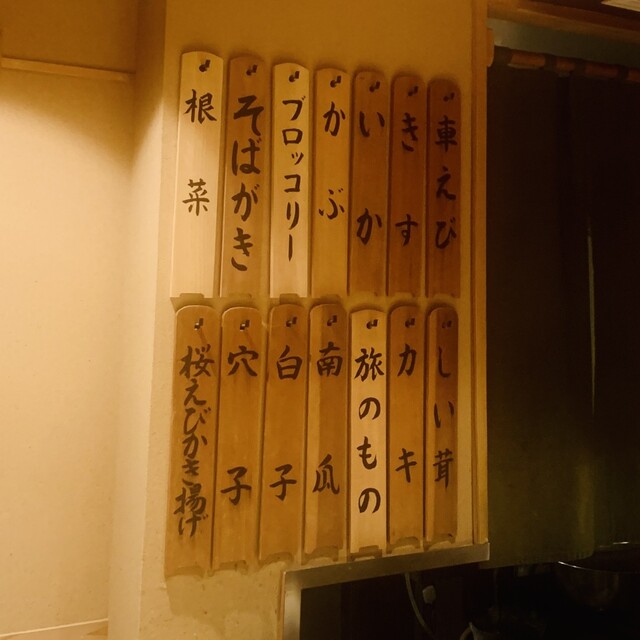 車えび
きす
いか
かぶ
ブロッコリー
そばがき
根菜
しい茸
カキ
旅のもの
南瓜
白子
穴子
桜えびかき揚げ